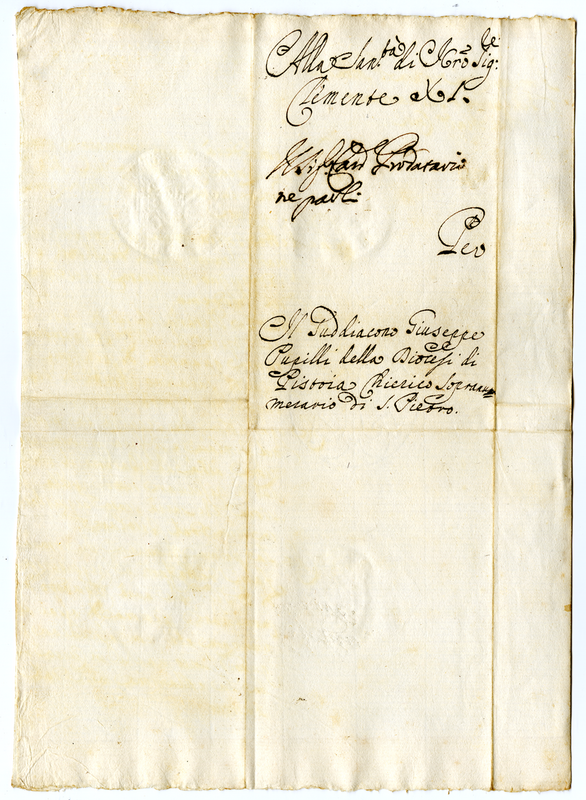 Alla San.tà di N.ro Sig.re
Clemente XI.
Monsig.r Prodatario
ne parli
Per
Il Suddiacono Giuseppe
Pupilli della Diocesi di
Pistoia Chierico Sopranu=
merario di S. Pietro.